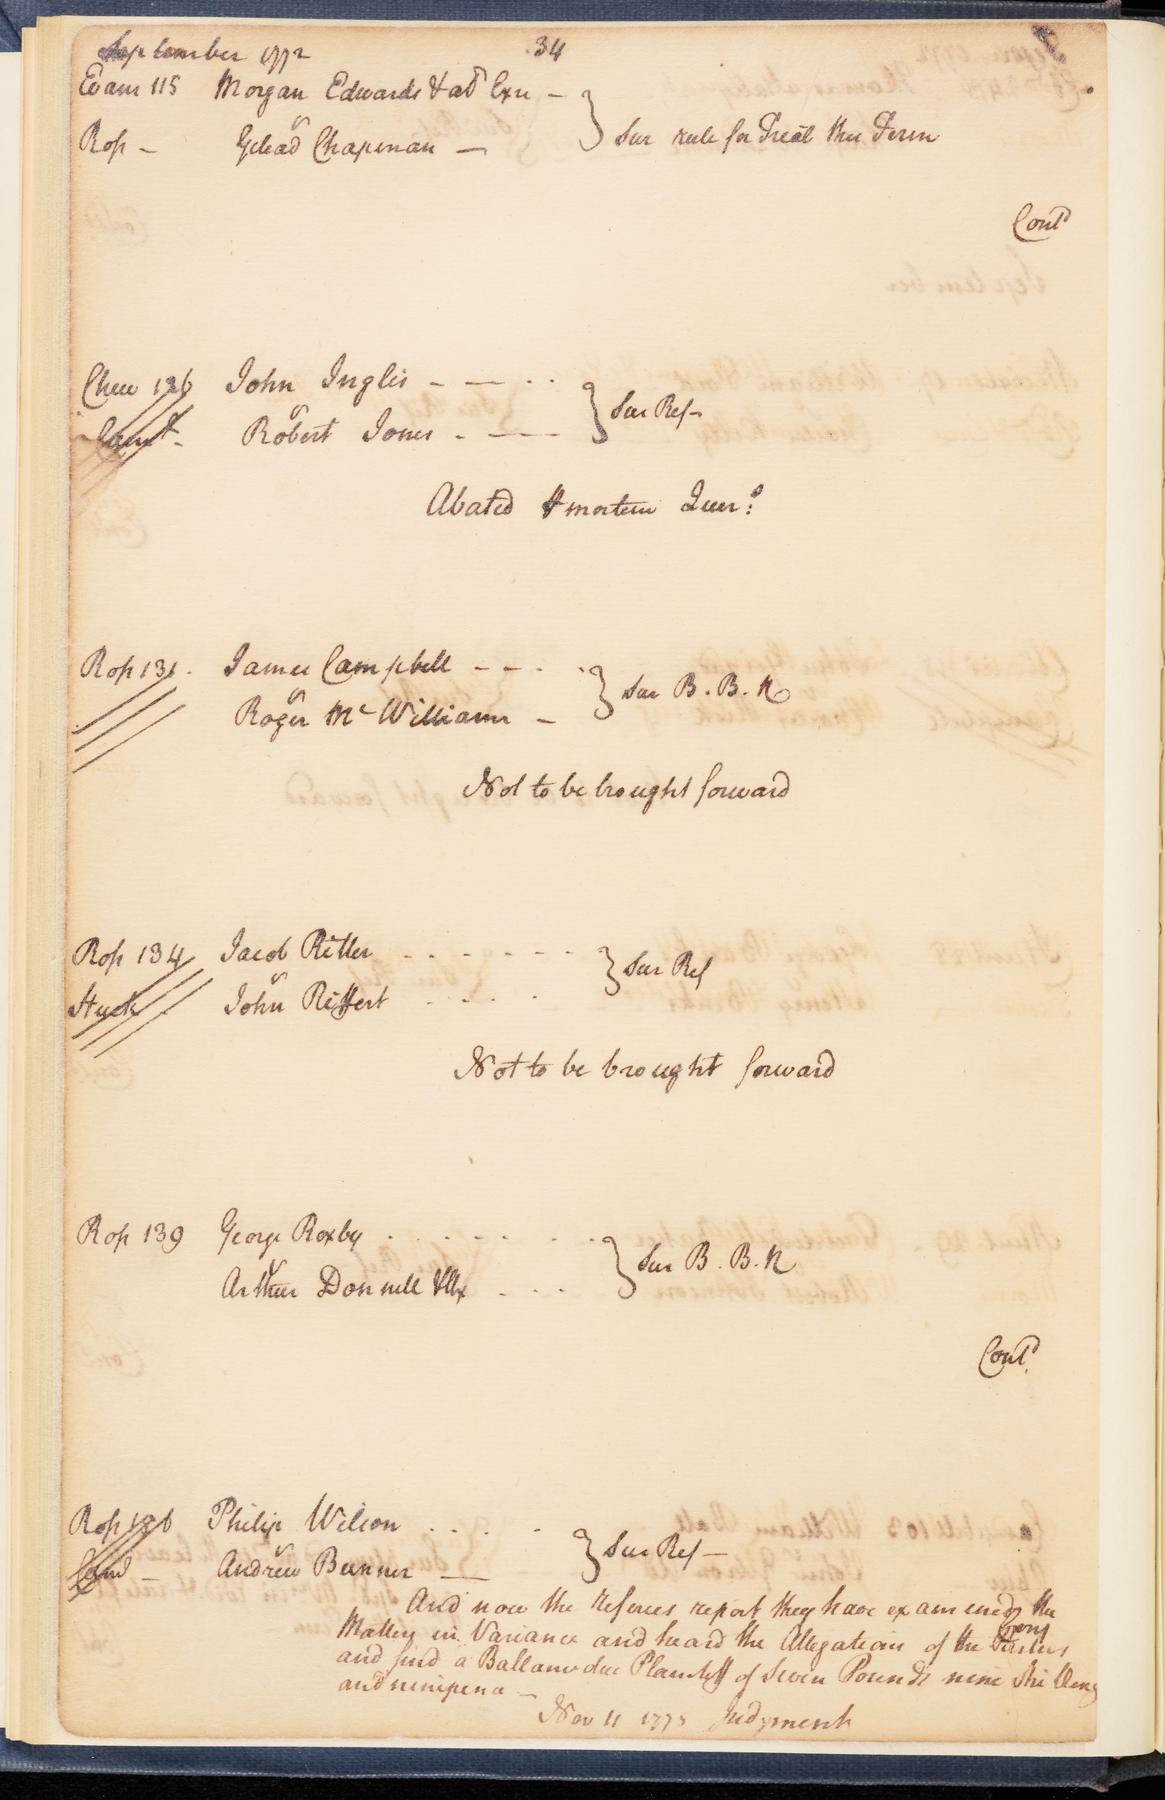 September 1772 34
Evans 115 Morgan Edwards & al Exn
v
Ross Gilead Chapman Sur rule for Treal this Term
Cont'd
Chew 126 John Inglis
v Sur Ref
Robert Jones
Abated # mortem Quer:s
Ross 131. James Campbell
v Sur B. B. R
Roger Mc Williams
Not to be brought forward
Ross 134 Jacob Ritter
v Sur Ref
John Riffert
Not to be brought forward
Ross 139 George Roxby
v Sur B. B. R
Arthur Donnell & Ux
Cont'd
Ross 136 Philip Wilson
v Sur Ref
Andrew Bunner
And now the referees report they have examined the
Matters in Variance and heard the Allegations of the Parties
and find a Ballance due Plaintiff of Seven Pounds nine Shillings
and ninepence
Nov 11 1775 Judgment